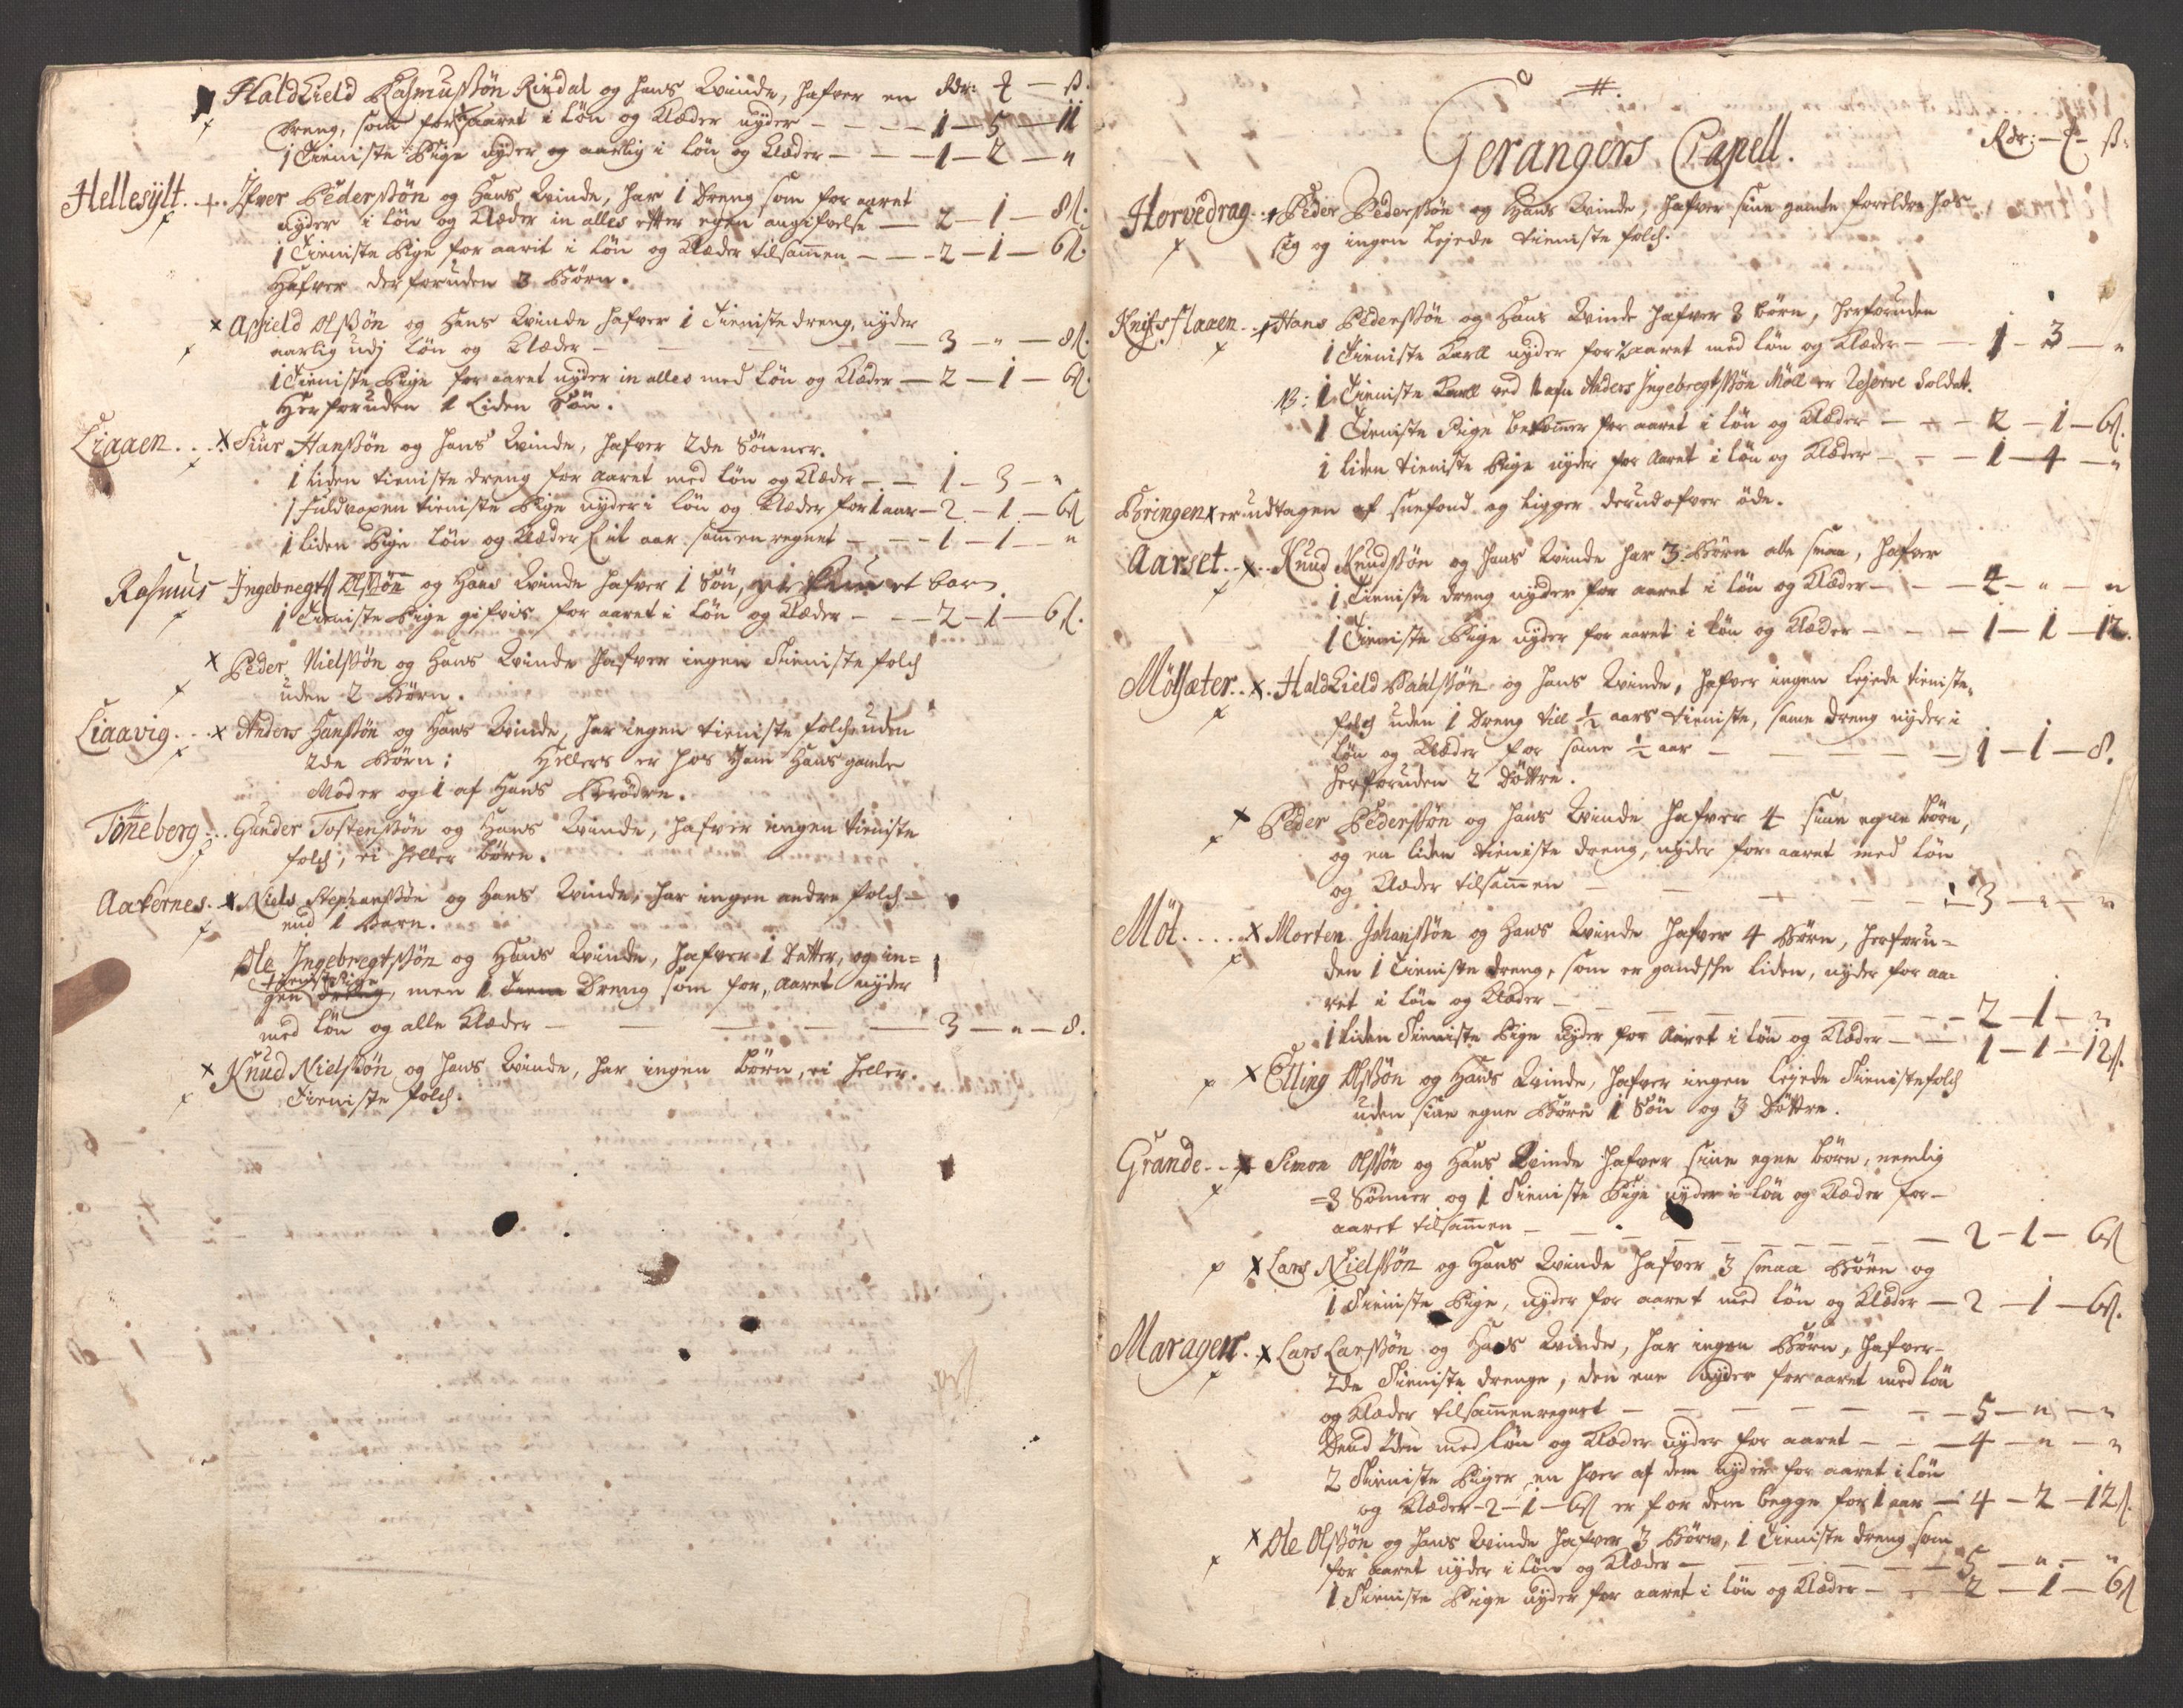 Haldkield Rasmussøn Rindal og hans Qvinde, hafver en Rdr: ꝶ — ß.
Dreng, som for ½ aaret i Løn og Klæder nyder — — — 1 — 5 — 11
1 Tieniste Pige nyder og aarlig i Løn og Klæder — — — 1 — 2 — "
Hellesylt. . Ifver Pederssøn og Hans Qvinde, har 1 Dreng som for aaret
nyder i Løn og Klæder in alles efter egen angifvelse — 2 — 1 — 8ß.
1 Tieniste Pige for aarit i Løn og Klæder tilsam̅en — — — 2 — 1 — 6ß.
Hafver derforuden 3 Børn.
x Olssøn og Hans Qvinde hafver 1 Tieniste dreng, nyder
aarlig udj Løn og Klæder — — — — 3 — " — 8ß.
1 Tieniste Pige for aaret nyder in alles med Løn og Klæder — 2 — 1 — 6ß.
Herforuden 1 Liden Søn.
Liaaen. . . x Siur Hanssøn og hans Qvinde, hafver 2de Sønner.
1 Liden tieniste dreng for aaret med Løn og Klæder — — 1 — 3 — "
1 Fuldvoxen tieniste Pige nyder i Løn og Klæder for 1 aar — 2 — 1 — 6ß
1 Liden Pige Løn og Klæder Eit aar sam̅enregnet — — — 1 — 1 — "
Rasmus Ingebregts Olssøn og Hans Qvinde hafver 1 Søn, et barn.
1 Tieniste Pige gifves for aaret i Løn og Klæder — — — 2 — 1 — 6ß.
x Peder Nielssøn og Hans Qvinde hafver ingen Tieniste folch
uden 2 Børn.
Liaavig. . . x Anders Hanssøn og Hans Qvinde, har ingen tieniste folch uden
2de Børn; Hellers er hos Ham Hans gamle
Moder og 1 af Hans Brødre.
Tön̅eberg. . . Gunder Tostenssøn og Hans Qvinde, hafver ingen tieniste
folch, ei heller børn.
Aakernes. x Niels Stephanssøn og Hans Qvinde, har ingen andre folch
end 1 Barn.
Ole Ingebregtssøn og Hans Qvinde, hafver 1 Datter, og in=
tieniste Pige
gen dreng, men 1 Tien Dreng som for, aaret nyder
med Løn og alle Klæder — — — — — 3 — " — 8.
x Knud Nielssøn og hans Qvinde, har ingen børn, ei heller
Tieniste folch.
Gerangers Capell.
Rdr: — ꝶ — ß:
Horvedrag. . Peder Pederssøn og Hans Qvinde, hafver sine gamle foreldre hos
sig og ingen Lejede tieniste folch.
Knifsflaaen. . Hans Pederssøn og Hans Qvinde hafver 3 børn, herforuden
1 Tieniste Karll nyder for ½ aaret med Løn og Klæder — — 1 — 3 — "
NB: 1 Tieniste Karll ved Nafn Anders Ingebregtssøn Möll er Reserve Soldat.
1 Tieniste Pige bekom̅er for aaret i Løn og Klæder — — — 2 — 1 — 6ß.
1 liden tieniste Pige nyder for Aaret i Løn og Klæder — — — 1 — 4 — "
Horingen x er udtagen af Sneefond og ligger derudofver öde.
Aarset. . x . . Knud Knudssøn og Hans Qvinde har 3 Børn alle smaa, hafver
1 Tieniste dreng nyder for aaret i Løn og Klæder — — — 4 — " — "
1 Tieniste Pige nyder for aaret i Løn og Klæder — — — 1 — 1 — 12.
Mölsæter. . x. Haldkield Pahlssøn og Hans Qvinde, hafver ingen Lejede tieniste-
folch uden 1 Dreng till ½ aars tieniste, same dreng nyder i
Løn og Klæder for same ½ aar — — — — 1 — 1 — 8.
herforuden 2 Døttre.
x Peder Pederssøn og hans Qvinde hafver 4 sine egne børn,
og en liden tieniste dreng, nyder for aaret med Løn
og Klæder tilsam̅en — — — — — 3 — " — "
Möl. . . . . x Morten Johanssøn og Hans Qvinde hafver 4 Børn, herforu=
den 1 Tieniste dreng, som er gandsche liden, nyder for aa=
ret i Løn og Klæder — — — — — — 2 — 1 — "
1 liden Tieniste Pige nyder for Aaret i Løn og Klæder — — 1 — 1 — 12ß.
x Elling Olssøn og Hans Qvinde, hafver ingen Lejede Tienistefolch
uden sine egne Børn 1 Søn og 3 Døttre.
Grande. . x Simon Olssøn og Hans Qvinde hafver sine egne børn, nemlig
=3 Sønner og 1 Tieniste Pige nyder i Løn og Klæder for-
aaret tilsam̅en — — — — — — 2 — 1 — 6ß
x Lars Nielssøn og Hans Qvinde hafver 3 smaa Børn og
1 Tieniste Pige, nyder for aaret med Løn og Klæder — 2 — 1 — 6ß.
Maragen. . x Lars Larssøn og Hans Qvinde, har ingen Børn, hafver-
2de Tieniste drenge, den ene nyder for aaret med Løn
og Klæder tilsam̅enregnet — — — — — 5 — " — "
Dend Uden med Løn og Klæder nyder for aaret — — — 4 — " — "
2 Tieniste Piger, en hver af dem nyder for aaret i Løn
og Klæder — 2 — 1 — 6ß er for dem begge for 1 aar — 4 — 2 — 12ß.
x Ole Olssøn og hans Qvinde hafver 3 Børn, 1 Tieniste dreng som
for aaret nyder i Løn og Klæder — — — — 5 — " — "
1 Tieniste Pige nyder for aaret i Løn og Klæder — — — 2 — 1 — 6ß